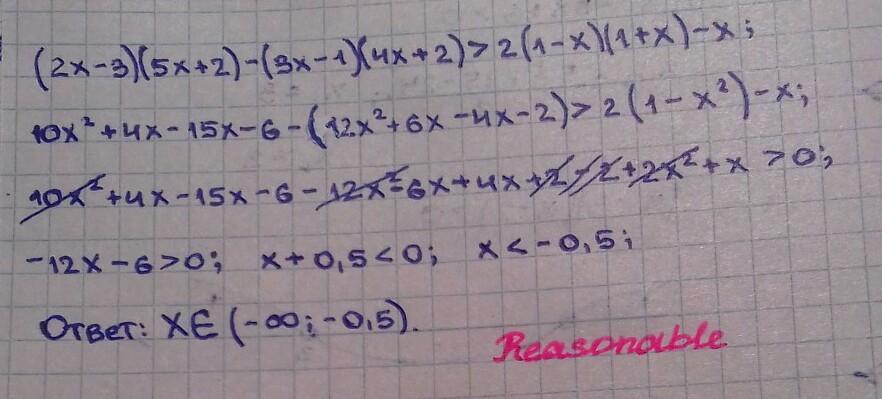 (2x-3)(5x+2)-(3x-1)(4x+2)>2(1-x)(1+x)-x;
10x²+4x-15x-6-(12x²+6x-4x-2)>2(1-x²)-x;
10x²+4x-15x-6-12x²-6x+4x+2-2+2x²+x>0;
-12x-6>0; x+0,5<0; x<-0,5;
Ответ: x∈(-∞;-0,5).
Reasonable